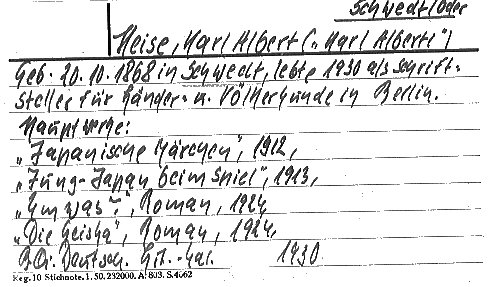 Schwedt/Oder
Heise, Karl Albert („Karl Alberti“)
Geb. 20.10.1868 in Schwedt, lebte 1930 als Schrift-
steller für Länder- u. Völkerkunde in Berlin.
Hauptwerke:
„Japanische Märchen“, 1912,
„Jung-Japan beim Spiel“, 1913,
„Um was?“, Roman, 1924
„Die Geisha“, Roman, 1924,
Deutsch. Lit.-Kal. 1930
Reg. 10 Stichnote. 1. 50. 232000. A. 803. S. 4062